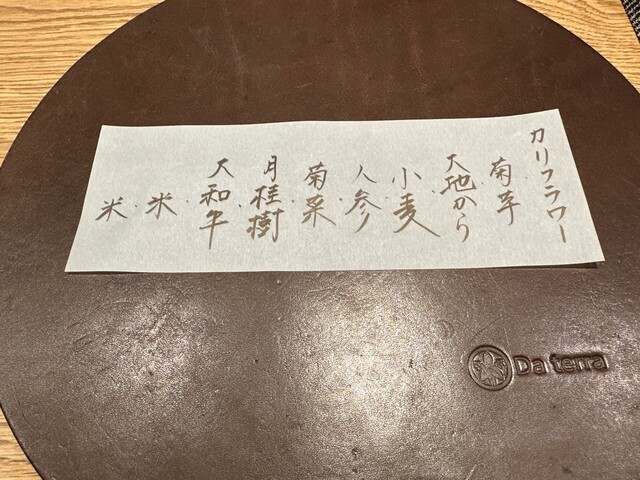 カリフラワー
菊芋
大地から
小麦
人参
菊菜
月桂樹
大和牛
米
米
Da terra